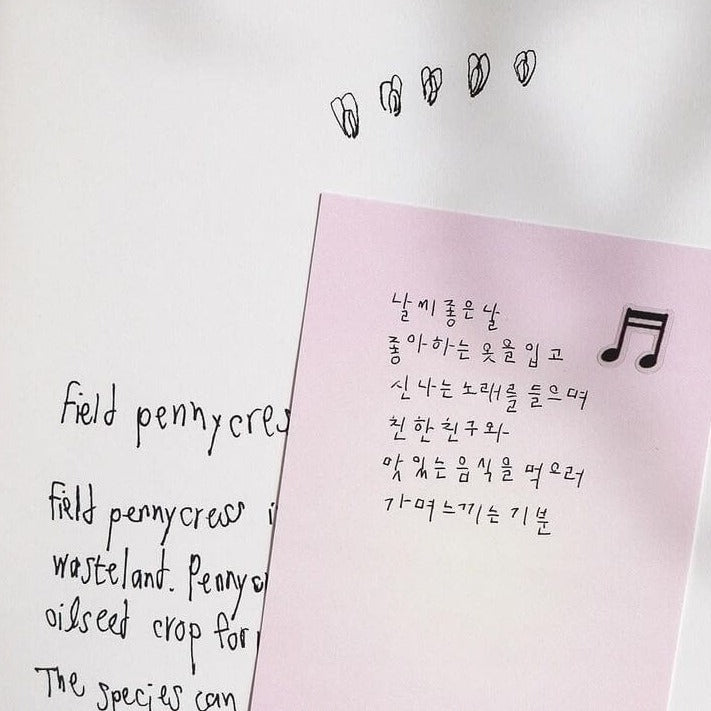 날씨 좋은 날
좋아하는 옷을 입고
신나는 노래를 들으며
친한 친구와
맛있는 음식을 먹으러
가며 느끼는 기분
Field pennycres
Field pennycress i
wasteland. Pennyc
oilseed crop for
The species can